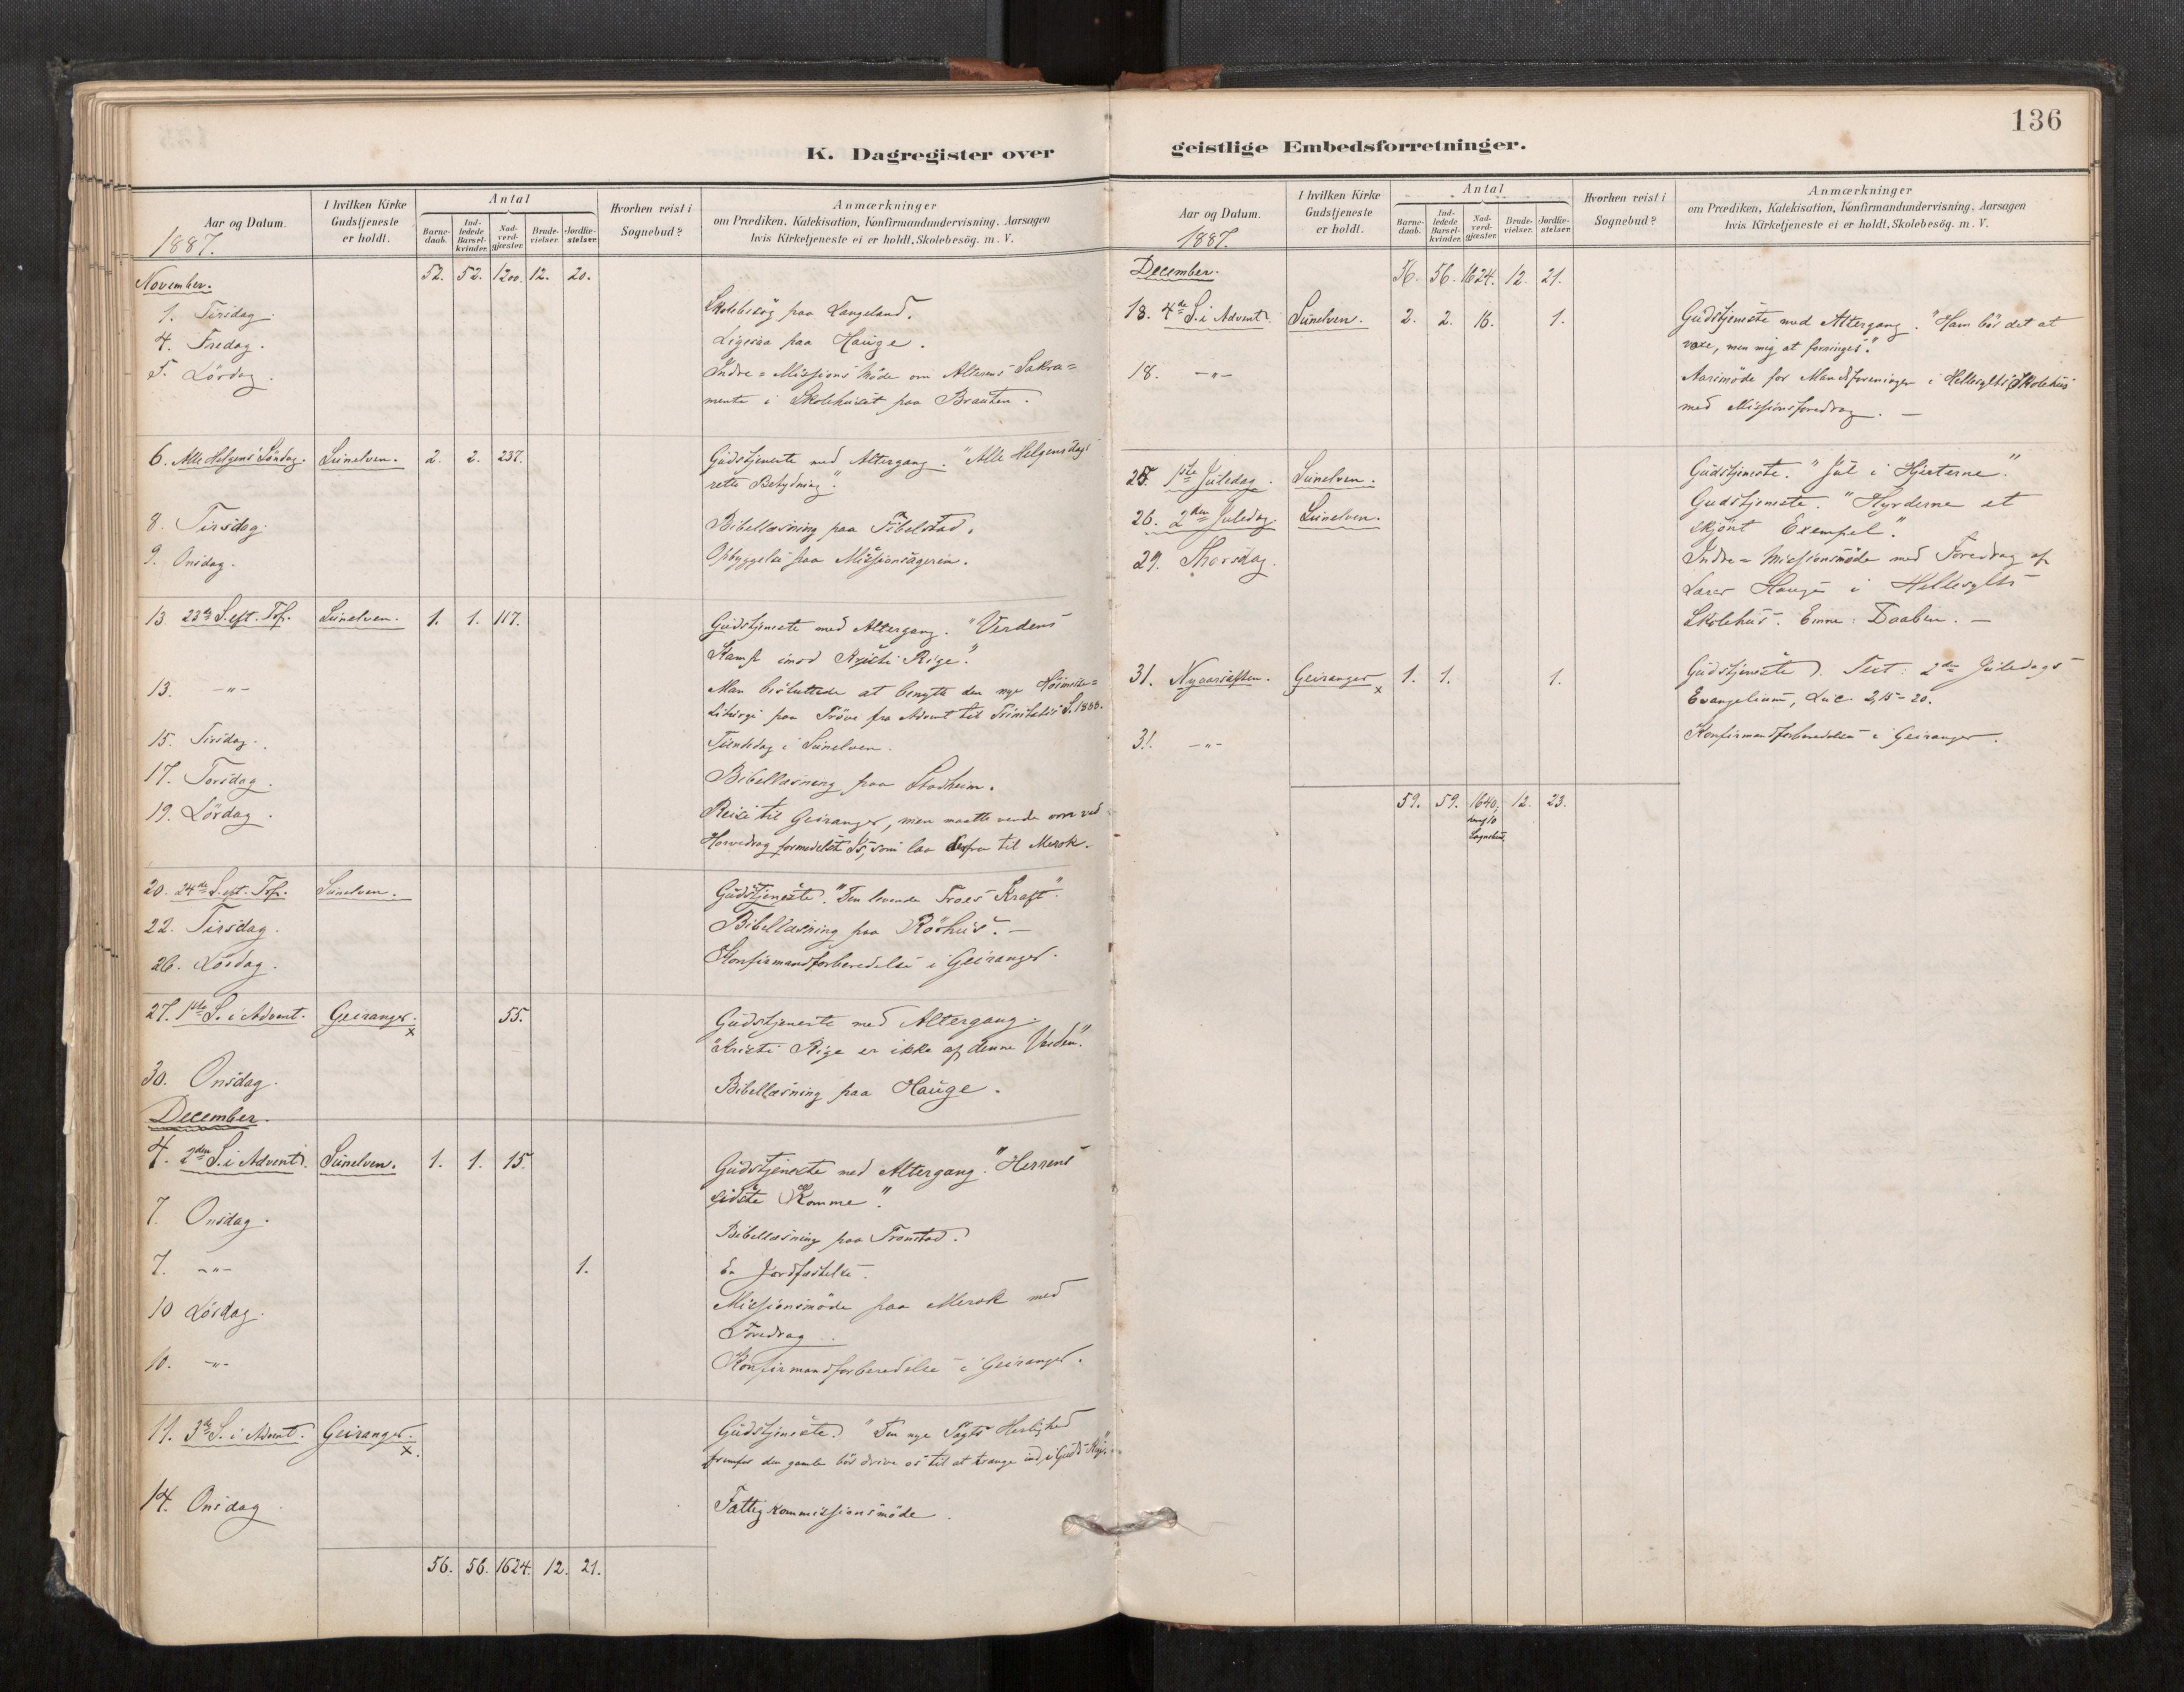 136
K. Dagregister over
Aar og Datum.
1887.
I hvilken Kirke Gudstjeneste er holdt.
Antal
Barne-daab.
Ind-ledede Barsel-kvinder.
Nad-verd-gjæster.
Brude-vielser.
Jordfæ-stelser.
Hvorhen reist i Sognebud?
Anmærkninger
om Prædiken, Katekisation, Konfirmandundervisning, Aarsagen
hvis Kirketjeneste ei er holdt, Skolebesög. m. V.
November. 52. 52. 1200. 12. 20.
1. Tirsdag. Skolebesøg paa Langeland.
4. Fredag. Ligesaa paa Hauge.
5. Lördag. Indre-Missions Møde om Alterens Sakra-
mente i Skolehuset paa Brauten.
6. Alle Helgens Søndag. Sunelven. 2. 2. 237. Gudstjeneste med Altergang. "Alle Helgens dags
rette Betydning."
8. Tirsdag. Bibellæsning paa Tibelstad.
9. Onsdag. Opbyggelse paa
13. 23de S. eft. Tref. Sunelven. 1. 1. 117. Gudstjeneste med Altergang. "Verdens
Kamp imod Kristi Rige."
13. -"- Man besluttede at benytte den nye Höimesse-
Liturgi paa Prøve fra Advent til Trinitatis S. 1888.
15. Tirsdag. Tiendedag i Sunelven.
17. Torsdag. Bibellæsning paa Stadheim.
19. Lördag. Reise til Geiranger, men maatte vende om ved
Horvedrag formedelst Is, som laa derfra til Merok.
20. 24de S. eft. Tref. Sunelven. Gudstjeneste. "Den levende Troes Kraft".
22. Tirsdag. Bibellæsning paa Röshus. -
26. Lördag. Konfirmandforberedelse i Geiranger.
27. 1ste S. i Advent. Geiranger. x 55. Gudstjeneste med Altergang.
"Kristi Rige er ikke af denne Verden".
30. Onsdag. Bibellæsning paa Hauge.
December.
4. 2den S. i Advent. Sunelven. 1. 1. 15. Gudstjeneste med Altergang. "Herrens
sidste Komme".
7. Onsdag. Bibellæsning paa Tronstad.
7. -"- 1. En Jordfæstelse.
10 Lördag. Missionsmöde paa Merok med
Foredrag.
10. -"- Konfirmandforberedelse i Geiranger.
11. 3de S. i Advent. Geiranger. x. Gudstjeneste. "Den nye Pagts Herlighed
fremfor den gamle bör drive os til at trænge ind i Guds Rige".
14. Onsdag. Fattigkommissionsmöde.
56. 56. 1624. 12. 21.
geistlige Embedsforretninger.
Aar og Datum.
1887.
I hvilken Kirke Gudstjeneste er holdt.
Antal
Barne-daab.
Ind-ledede Barsel-kvinder.
Nad-verd-gjæster.
Brude-vielser.
Jordfæ-stelser.
Hvorhen reist i Sognebud?
Anmærkninger
om Prædiken, Katekisation, Konfirmandundervisning, Aarsagen
hvis Kirketjeneste ei er holdt, Skolebesög. m. V.
December. 56. 56. 1624. 12. 21.
18. 4de S. i Advent. Sunelven. 2. 2. 16. 1. Gudstjeneste med Altergang. "Ham bör det at
voxe, men mig at forringes."
18. -"- Aarsmöde for Mandsforeningen i Hellesylts Skolehus
med Missionsforedrag. -
25. 1ste Juledag. Sunelven. Gudstjeneste. "Jul i Hjerterne".
26. 2den Juledag. Sunelven. Gudstjeneste. "Hyrderne et
skjönt Exempel".
29. Thorsdag. Indre-Missionsmöde med Foredrag af
Lærer Hauge i Hellesylts
Skolehus. Emne: Daaben. -
31. Nyaarsaften. Geiranger x 1. 1. 1. Gudstjeneste. Text: 2den Juledags
Evangelium, Luc. 2,15-20.
31. -"- Konfirmandforberedelse i Geiranger.
59. 59. 1640, 12. 23.
heraf 10
Sognebud.